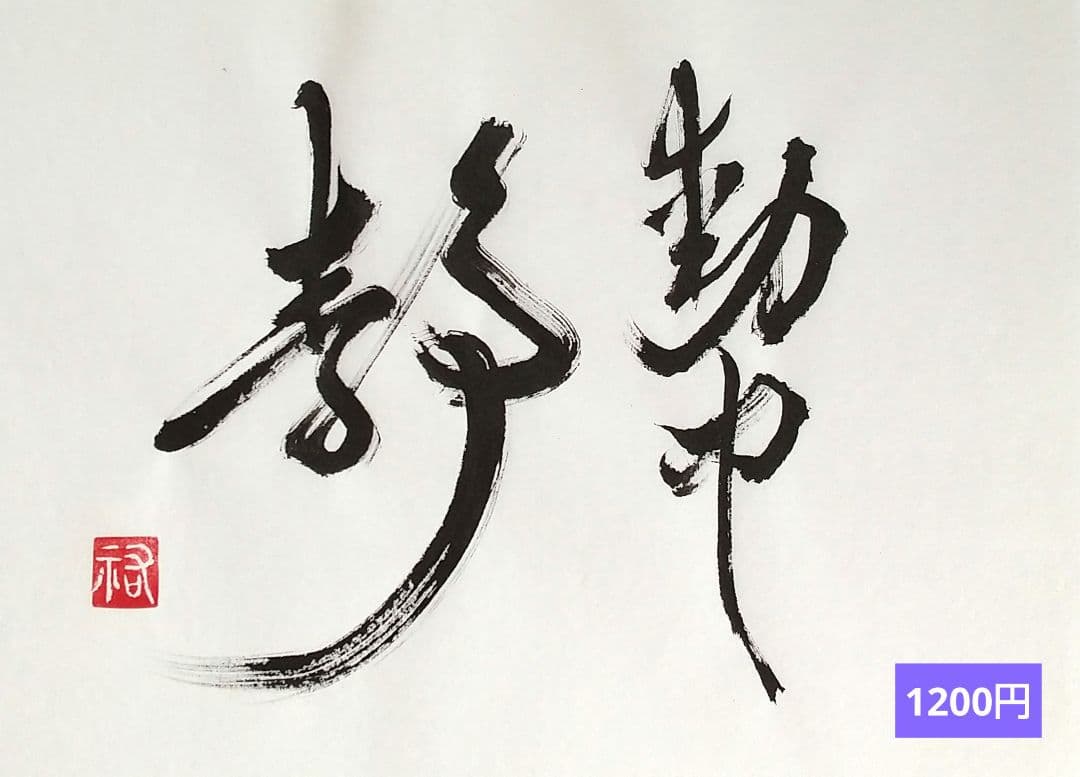 動中
静
祐
1200円